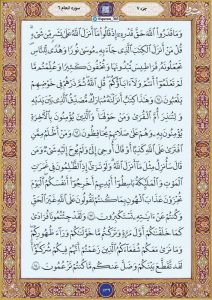 جزء ٧
سورة الأنعام ٦
وَمَا قَدَرُوا۟ ٱللَّهَ حَقَّ قَدْرِهِۦٓ إِذْ قَالُوا۟ مَآ أَنزَلَ ٱللَّهُ عَلَىٰ بَشَرٍ مِّن شَىْءٍ
قُلْ مَنْ أَنزَلَ ٱلْكِتَٰبَ ٱلَّذِى جَآءَ بِهِۦ مُوسَىٰ نُورًا وَهُدًى لِّلنَّاسِ
تَجْعَلُونَهُۥ قَرَاطِيسَ تُبْدُونَهَا وَتُخْفُونَ كَثِيرًا وَعُلِّمْتُم مَّا
لَمْ تَعْلَمُوٓا۟ أَنتُمْ وَلَآ ءَابَآؤُكُمْ قُلِ ٱللَّهُ ثُمَّ ذَرْهُمْ فِى خَوْضِهِمْ
يَلْعَبُونَ ٩١ وَهَٰذَا كِتَٰبٌ أَنزَلْنَٰهُ مُبَارَكٌ مُّصَدِّقُ ٱلَّذِى بَيْنَ يَدَيْهِ
وَلِتُنذِرَ أُمَّ ٱلْقُرَىٰ وَمَنْ حَوْلَهَا وَٱلَّذِينَ يُؤْمِنُونَ بِٱلْـَٔاخِرَةِ
يُؤْمِنُونَ بِهِۦ وَهُمْ عَلَىٰ صَلَاتِهِمْ يُحَافِظُونَ ٩٢ وَمَنْ أَظْلَمُ مِمَّنِ
ٱفْتَرَىٰ عَلَى ٱللَّهِ كَذِبًا أَوْ قَالَ أُوحِىَ إِلَىَّ وَلَمْ يُوحَ إِلَيْهِ شَىْءٌ وَمَن
قَالَ سَأُنزِلُ مِثْلَ مَآ أَنزَلَ ٱللَّهُ وَلَوْ تَرَىٰٓ إِذِ ٱلظَّٰلِمُونَ فِى غَمَرَٰتِ
ٱلْمَوْتِ وَٱلْمَلَٰٓئِكَةُ بَاسِطُوٓا۟ أَيْدِيهِمْ أَخْرِجُوٓا۟ أَنفُسَكُمُ ٱلْيَوْمَ
تُجْزَوْنَ عَذَابَ ٱلْهُونِ بِمَا كُنتُمْ تَقُولُونَ عَلَى ٱللَّهِ غَيْرَ ٱلْحَقِّ
وَكُنتُمْ عَنْ ءَايَٰتِهِۦ تَسْتَكْبِرُونَ ٩٣ وَلَقَدْ جِئْتُمُونَا فُرَٰدَىٰ
كَمَا خَلَقْنَٰكُمْ أَوَّلَ مَرَّةٍ وَتَرَكْتُم مَّا خَوَّلْنَٰكُمْ وَرَآءَ ظُهُورِكُمْ
وَمَا نَرَىٰ مَعَكُمْ شُفَعَآءَكُمُ ٱلَّذِينَ زَعَمْتُمْ أَنَّهُمْ فِيكُمْ شُرَكَٰٓؤُا۟
لَقَد تَّقَطَّعَ بَيْنَكُمْ وَضَلَّ عَنكُم مَّا كُنتُمْ تَزْعُمُونَ ٩٤
١٣٩